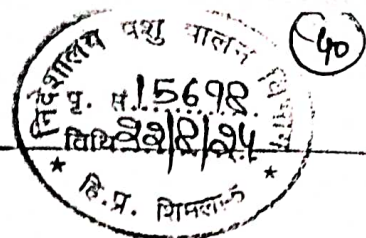 निदेशालय पशु पालन विभाग
40
पृ. सं. 15698
तिथि 22/8/24
* हि.प्र. शिमला *